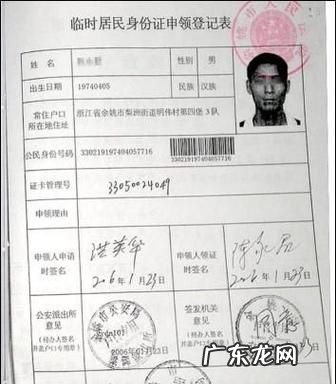 临时居民身份证申领登记表
姓名 性别 男
出生日期 19740405 民族 汉族
常住户口所在地住址 浙江省余姚市梨洲街道明伟村第四堡3队
公民身份号码 330219197404057716
330219197404057716
证卡管理号 33050024049
申领理由
申领人申请时签名 洪英华 申领人领证时签名
2006年1月23日 2006年1月23日
公安派出所意见 签发机关意见
(经办人签名并盖户口专用章) (经办人签名并盖户口专用章)
2006年01月23日
广东龙网